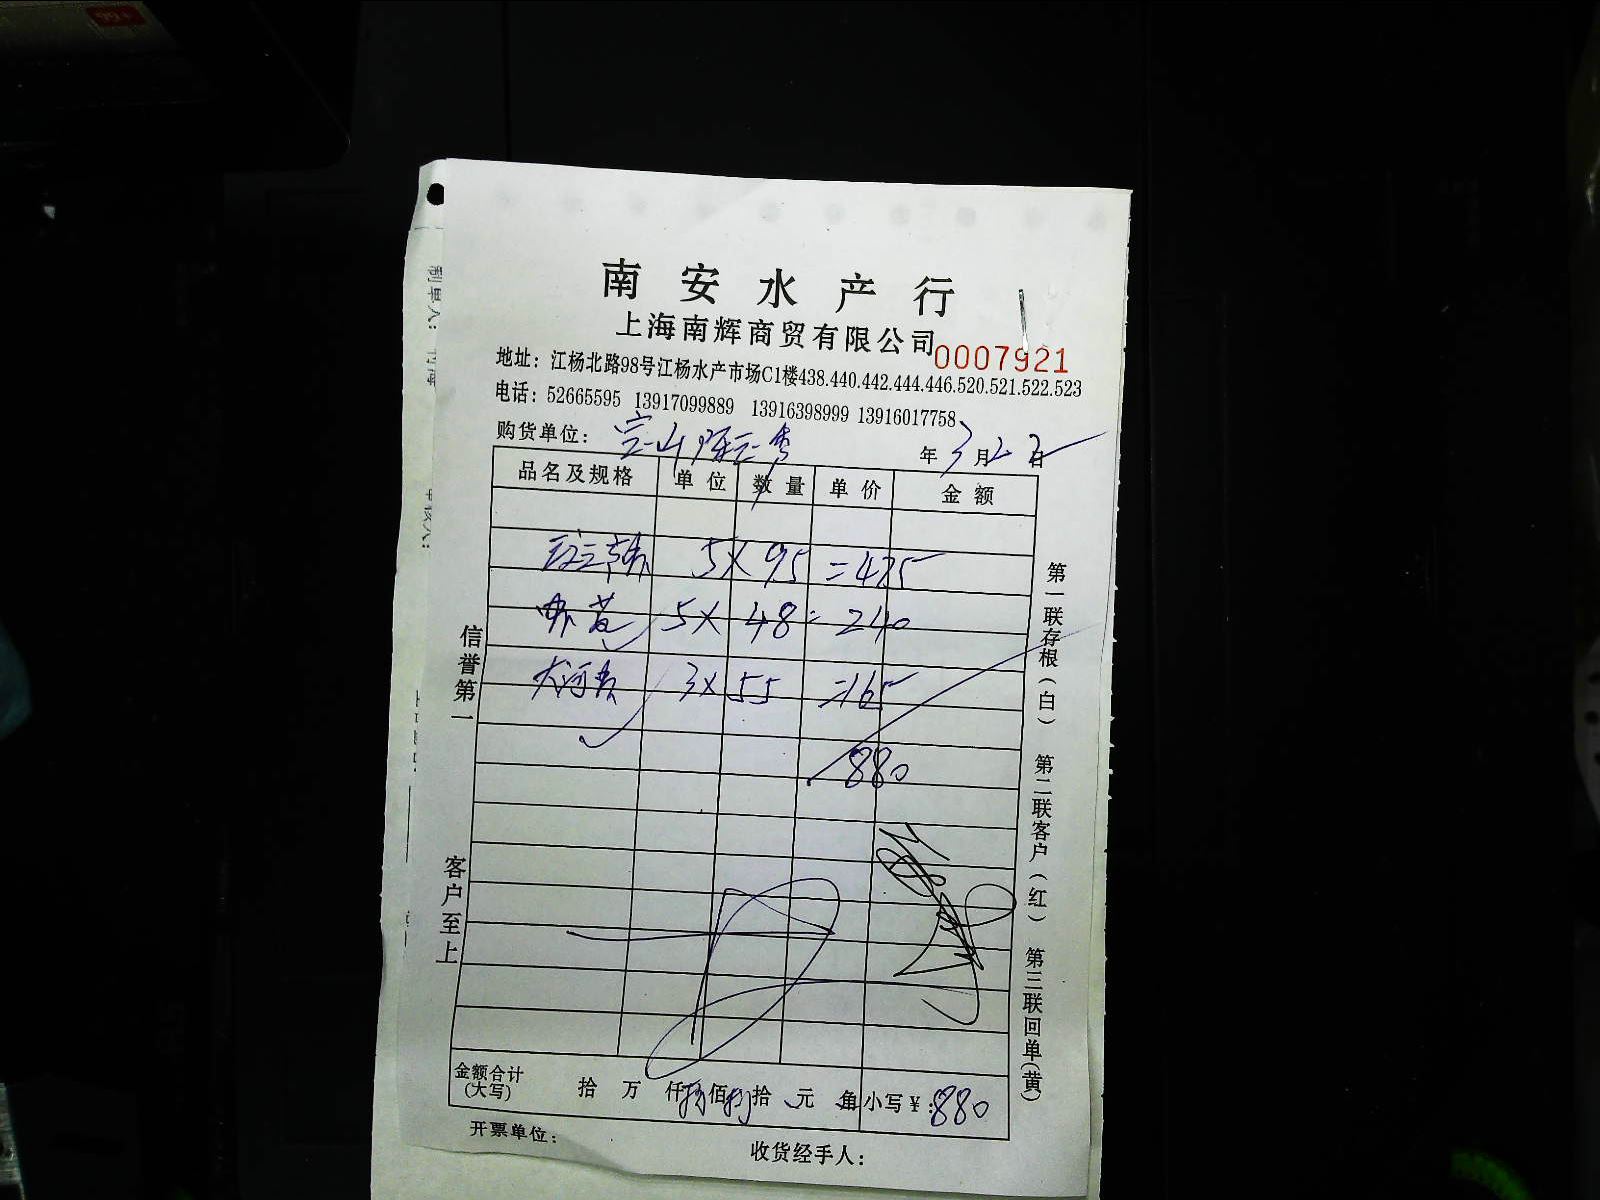 南安水产行
上海南辉商贸有限公司 0007921
地址：江杨北路98号江杨水产市场C1楼438.440.442.444.446.520.521.522.523
电话：52665595 13917099889 13916398999 13916017758
购货单位：宝山 年3月2日
品名及规格 单位 数量 单价 金额
5×95=475
虾 5×48=240
大河 3×55=165
880
金额合计(大写) 拾 万 仟 捌佰 捌拾 元 角 小写¥：880
开票单位： 收货经手人：
信誉第一
客户至上
第一联存根（白）
第二联客户（红）
第三联回单（黄）
制单人：
99+